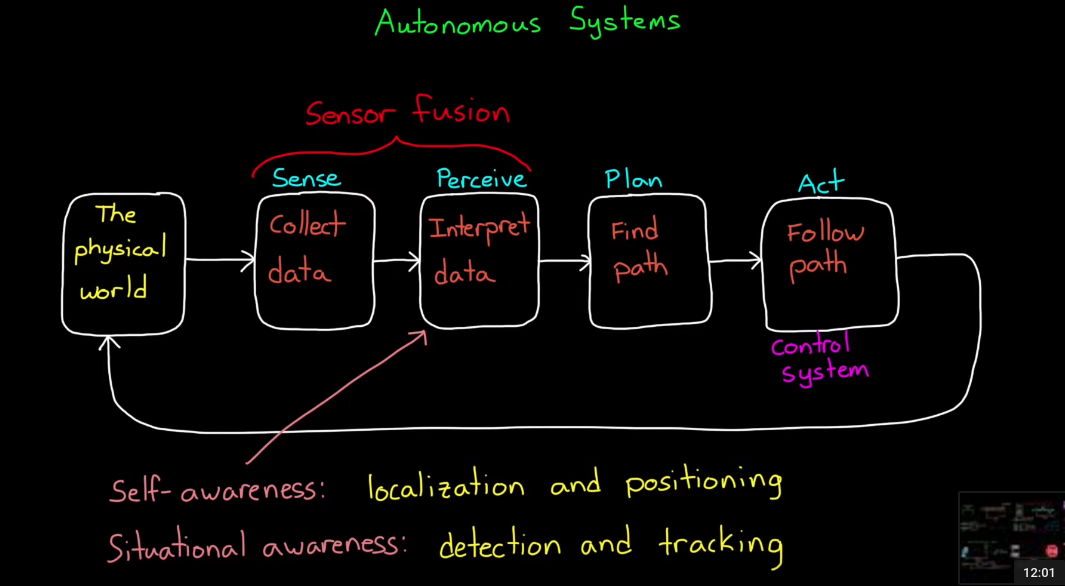 Autonomous Systems
Sensor fusion
Sense
Perceive
Plan
Act
The
physical
world
Collect
data
Interpret
data
Find
path
Follow
path
Control
system
Self-awareness: localization and positioning
Situational awareness: detection and tracking
12:01